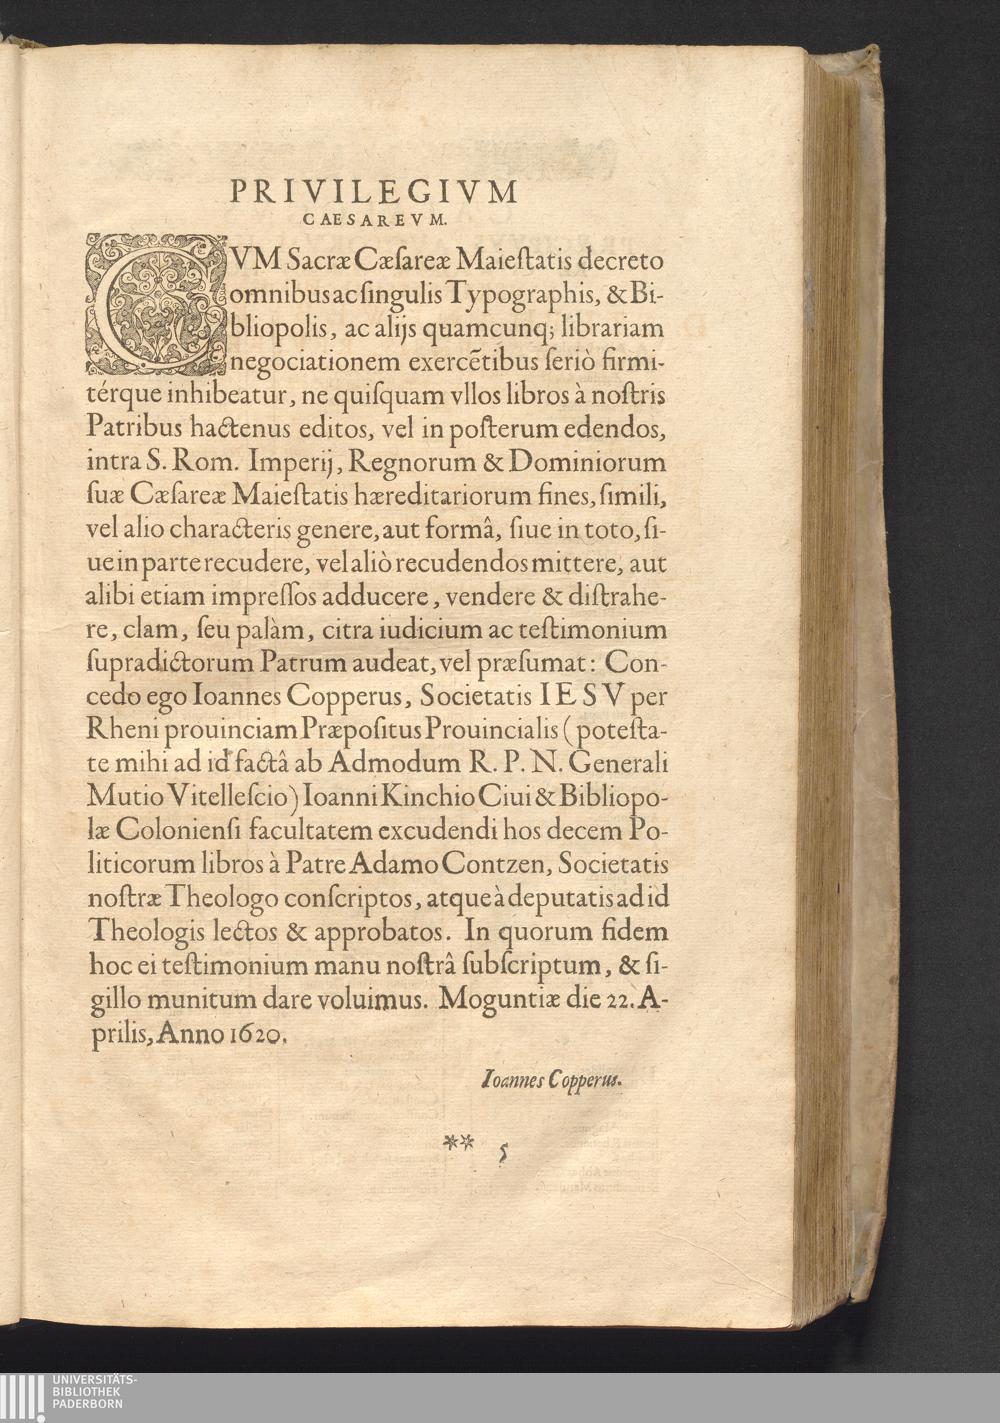 PRIVILEGIVM
CAESAREVM.
CVM Sacræ Cæſareæ Maieſtatis decreto
omnibus ac ſingulis Typographis, & Bi-
bliopolis, ac alijs quamcunq; librariam
negociationem exercẽtibus ſeriò firmi-
térque inhibeatur, ne quiſquam vllos libros à noſtris
Patribus hactenus editos, vel in poſterum edendos,
intra S. Rom. Imperij, Regnorum & Dominiorum
ſuæ Cæſareæ Maieſtatis hæreditariorum fines, ſimili,
vel alio characteris genere, aut formâ, ſiue in toto, ſi-
ue in parte recudere, vel aliò recudendos mittere, aut
alibi etiam impreſſos adducere, vendere & diſtrahe-
re, clam, ſeu palàm, citra iudicium ac teſtimonium
ſupradictorum Patrum audeat, vel præſumat: Con-
cedo ego Ioannes Copperus, Societatis IESV per
Rheni prouinciam Præpoſitus Prouincialis (poteſta-
te mihi ad id factâ ab Admodum R. P. N. Generali
Mutio Vitelleſcio) Ioanni Kinchio Ciui & Bibliopo-
læ Colonienſi facultatem excudendi hos decem Po-
liticorum libros à Patre Adamo Contzen, Societatis
noſtræ Theologo conſcriptos, atque à deputatis ad id
Theologis lectos & approbatos. In quorum fidem
hoc ei teſtimonium manu noſtrâ ſubſcriptum, & ſi-
gillo munitum dare voluimus. Moguntiæ die 22. A-
prilis, Anno 1620.
Ioannes Copperus.
** 5
UNIVERSITÄTS-
BIBLIOTHEK
PADERBORN